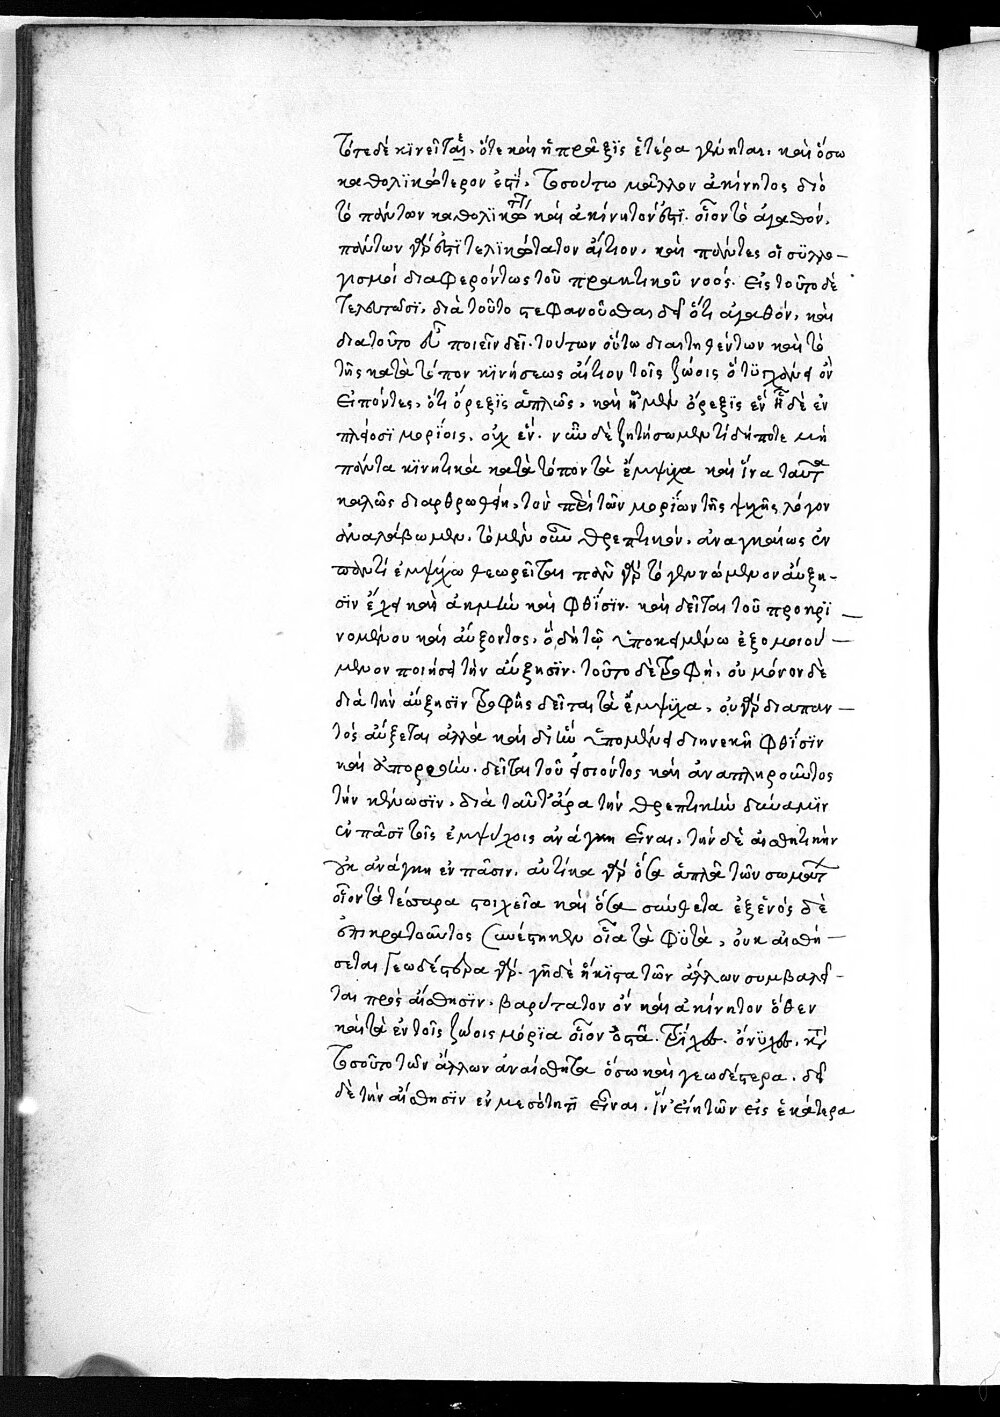 τότε δὲ κινεῖται, ὅτε καὶ ἡ πρᾶξϊς ἑτέρα γένηται. καὶ ὅσω
καθολϊκώτερον ἐστϊ, τοσούτω μᾶλλον ἀκίνητος διὸ
τὸ πάντων καθολϊκώτ καὶ ἀκίνητον ἐστϊ. οἷον τὸ ἀγαθόν.
πάντων γάρ ἐστϊ τελϊκώτατον αἴτιον. καὶ πάντες οἱ συλλο–
γισμοὶ διαφερόντως τοῦ πρακτικοῦ νοός. εἰς τοῦτο δὲ
τελευτῶσϊ, διὰ τοῦτο πεφανοῦσθαι δεῖ ὅτι ἀγαθόν, καὶ
διατοῦτο ποιεῖν δεῖ. τούτων οὕτω διαιτηθέντων καὶ τὸ
τῆς κατὰ τόπον κϊνήσεως αἴτιον τοῖς ζώοις ὃ τϋγχάνει ὂν
εἰπόντες, ὅτι ὄρεξϊς ἁπλῶς, καὶ ᾗ μὲν ὄρεξϊς ἓν ᾗ δὲ ἐν
πλείοσϊ μορΐοις, οὐχ ἕν. νῦν δὲ ζητήσωμεν τί δήποτε μὴ
πάντα κϊνητικὰ κατὰ τόπον τὰ ἔμψυχα καὶ ἵνα ταῦτα
καλῶς διαρθρωθείη, τὸν περὶ τῶν μορίων τῆς ψυχῆς λόγον
ἀναλάβωμεν. τὸ μὲν οὖν θρεπτικὸν, ἀναγκαίως ἐν
παντὶ ἐμψύχω θεωρεῖται πᾶν γὰρ τὸ γενόμενον αὔξη-
σϊν ἔχει καὶ ἀκμὴν καὶ φθΐσϊν. καὶ δεῖται τοῦ προκρϊ —
νομένου καὶ αὔξοντος, ὃ δὴ τῷ ὑποκειμένω ἐξομοιού —
μενον ποιήσει τὴν αὔξησϊν. τοῦτο δὲ τροφή, οὐ μόνον δὲ
διὰ τὴν αὔξησϊν τροφῆς δεῖται τὰ ἔμψϋχα, οὐ γὰρ διαπαν —
τὸς αὔξεται ἀλλὰ καὶ δι' ἣν ὑπομένει διηνεκῆ φθΐσϊν
καὶ ἀπορροὴν. δεῖται τοῦ εἰσιόντος καὶ ἀναπληροῦντος
τὴν κένωσϊν, διὰ ταῦτ' ἄρα τὴν θρεπτικὴν δύναμϊν
ἐν πᾶσϊ τοῖς ἐμψύχοις ἀνάγκη εἶναι, τὴν δὲ αἰσθητικὴν
οὐκ ἀνάγκη ἐν πᾶσιν. αὐτίκα γὰρ ὅσα ἁπλᾶ τῶν σωμάτ
οἷον τὰ τέσσαρα στοιχεῖα καὶ ὅσα σύνθετα ἐξ ἑνός δὲ
ἐπικρατοῦντος συνέστηκεν οἷα τὰ φϋτὰ, οὐκ αἰσθή —
σεται γεωδέστερα γάρ. γῆ δὲ ἥκϊστα τῶν ἄλλων συμβάλε -
ται πρὸς αἴσθησϊν, βαρύτατον ὂν καὶ ἀκίνητον ὅθεν
καὶ τὰ ἐν τοῖς ζώοις μόρϊα οἷον ὀστᾶ. τρίχες. ὄνϋχες. καὶ
τοσοῦτο τῶν ἄλλων ἀναίσθητα ὅσω καὶ γεωδέστερα. δεῖ
δὲ τὴν αἴσθησϊν ἐν μεσότητϊ εἶναι. ἵν' εἴη τῶν εἰς ἑκάτερα